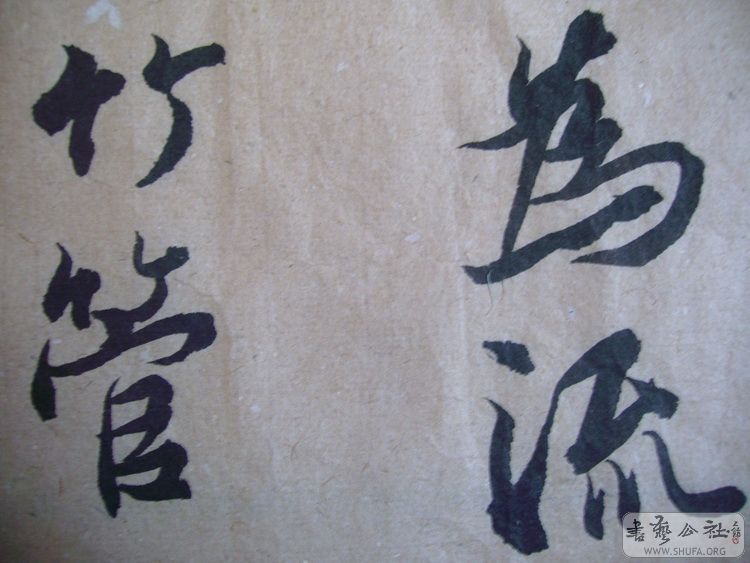 為流
竹管
書藝公社
WWW.SHUFA.ORG